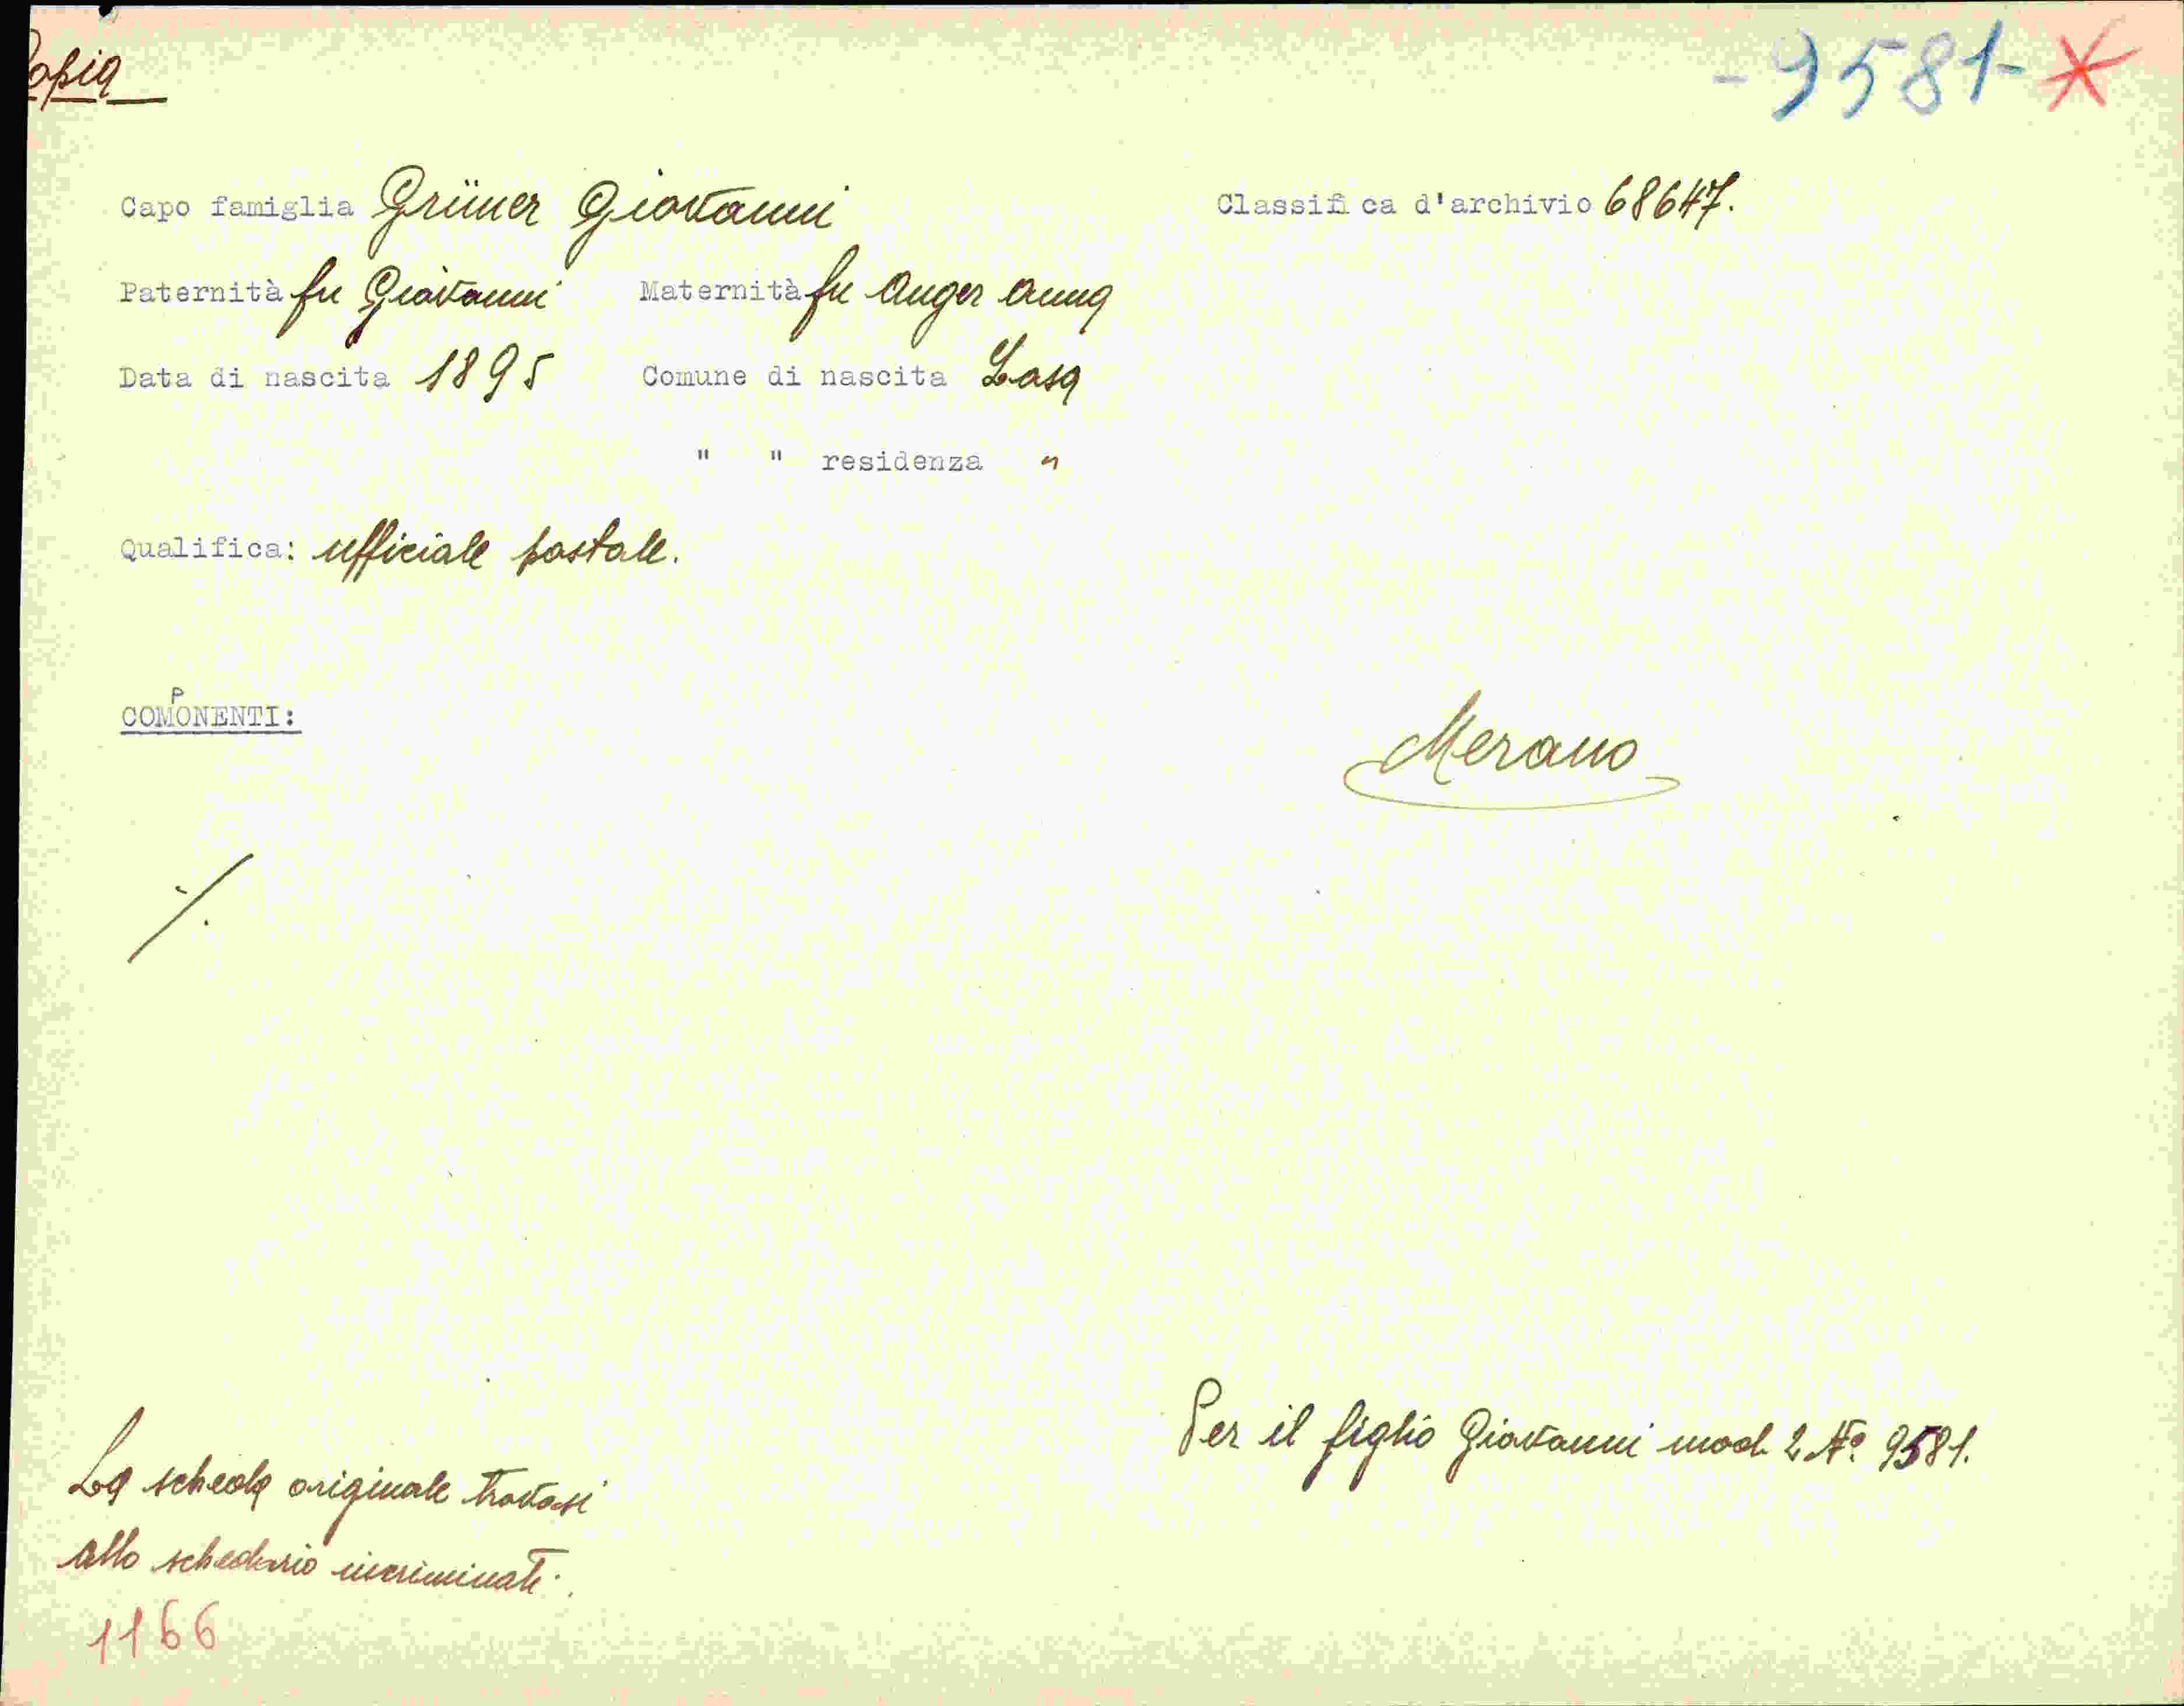 Copia
-9581- *
Capo famiglia Grüner Giovanni Classifica d'archivio 68647.
Paternità fu Giovanni Maternità fu Anger Anna
Data di nascita 1895 Comune di nascita Lasa
" " residenza "
Qualifica: ufficiale postale.
COMPONENTI:
Merano
/.
Per il figlio Giovanni mod 2 No 9581.
La scheda originale trovasi
allo schedario incriminati.
1166